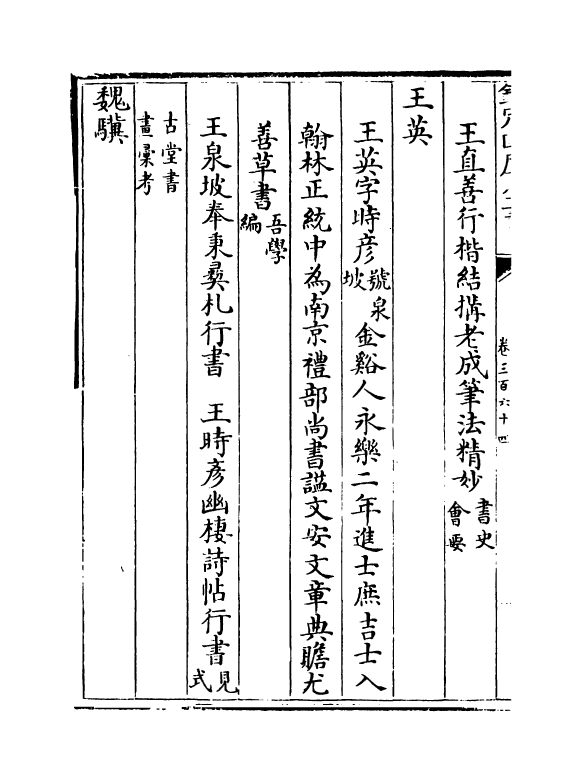 卷三百六十四
王直善行楷結搆老成筆法精妙書史會要
王英
王英字時彦號泉坡金谿人永樂二年進士庶吉士入
翰林正統中為南京禮部尚書諡文安文章典贍尤
善草書吾學編
王泉坡奉秉彞札行書　王時彦幽棲詩帖行書見式
古堂書畫彚考
魏驥